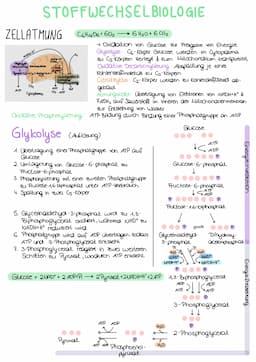 STOFFWECHSELBIOLOGIE
ZELLATMUNG
C₆H₁₂O₆ + 6O₂ → 6 H₂O + 6 CO₂
→ Oxidation von Glucose für Freigabe von Energie
Glykolyse: C₆-Körper Glucose werden im Cytoplasma
zu C₃-Körper zerlegt & zum Mitochondrium transportiert
Oxidative Decarboxylierung: Abspaltung
Kohlenstoffdioxid aus C₃-Körper
Citratzyklus: C₂-Körper werden zu Kohlenstoffdioxid
Atmungskette: Übertragung von Elektronen von NADH+H⁺ &
FADH₂ auf Sauerstoff in Innern der Mitochondrienmembran
zur Entstehung von Wasser
Oxidative Phosphorylierung: ATP Bildung durch Bindung einer Phosphatgruppe an ADP
Glykolyse (Auflösung)
1. Übertragung einer Phosphatgruppe von ATP auf
Glucose
2. Umlagerung von Glucose-6-phosphat zu
Fructose-6-phosphat
3. Phosphorylierung mit einer zweiten Phosphatgruppe
zu Fructose-1,6-bisphosphat unter ATP-Verbrauch
4. Spaltung in zwei C₃-Körper
5. Glycerinaldehyd-3-phosphat wird zu 1,3-
Bisphosphoglycerat oxidiert, während NAD⁺ zu
NADH+H⁺ reduziert wird
6. Phosphatgruppe wird auf ADP übertragen, sodass
ATP und 3-Phosphoglycerat entsteht
7. 3-Phosphoglycerat reagiert in zwei weiteren
Schritten zu Pyruvat, wodurch ATP entsteht
Glucose + 2NAD⁺ + 2ADP+Pi → 2Pyruvat + 2NADH+H⁺ + 2ATP
Glucose
ATP
ADP
Glucose-6-phosphat
Fructose-6-phosphat
ATP
ADP
Fructose-1,6-bisphosphat
Glycerinaldehyd-3-phosphat
Dihydroxyacetonphosphat
1,3-Bisphosphoglycerat
3-Phosphoglycerat
2-Phosphoglycerat
Phosphoenol-
pyruvat
Pyruvat
ATP
ADP
Energieinvestition
Energiegewinnung